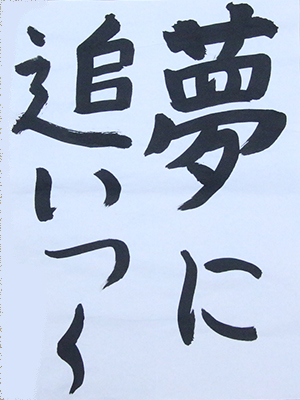 夢に
追いつく